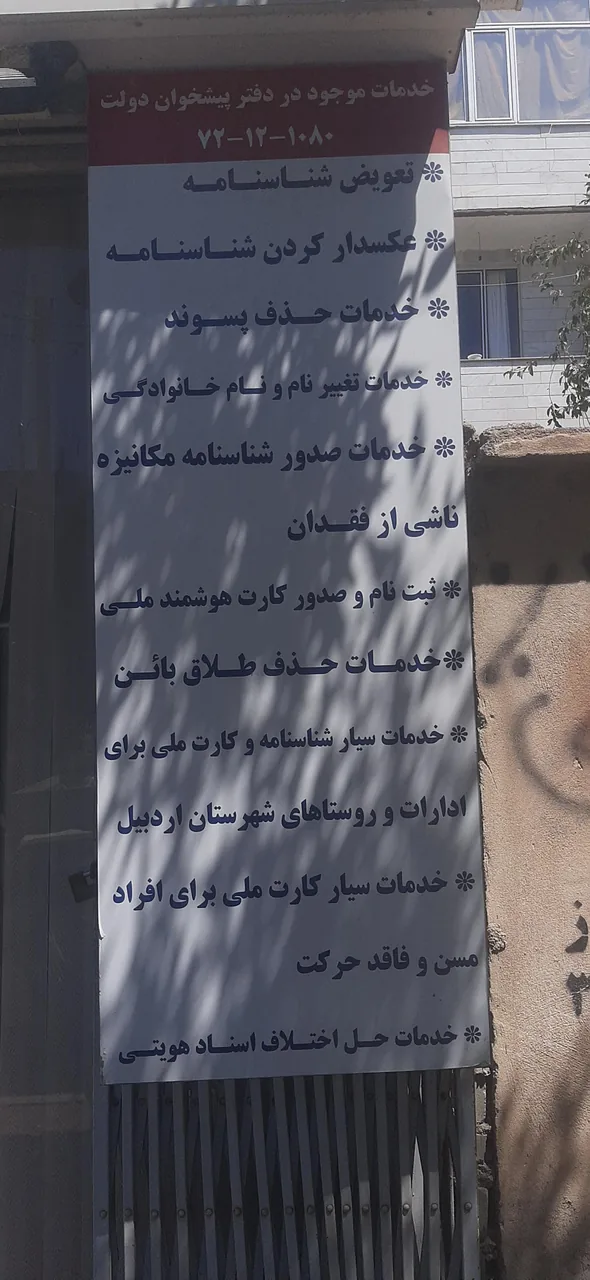 خدمات موجود در دفتر پیشخوان دولت
۷۲-۱۲-۱۰۸۰
❊ تعویض شناسنامه
❊ عکسدار کردن شناسنامه
❊ خدمات حذف پسوند
❊ خدمات تغییر نام و نام خانوادگی
❊ خدمات صدور شناسنامه مکانیزه
ناشی از فقدان
❊ ثبت نام و صدور کارت هوشمند ملی
❊خدمات حذف طلاق بائن
❊ خدمات سیار شناسنامه و کارت ملی برای
ادارات و روستاهای شهرستان اردبیل
❊ خدمات سیار کارت ملی برای افراد
مسن و فاقد حرکت
❊ خدمات حل اختلاف اسناد هویتی